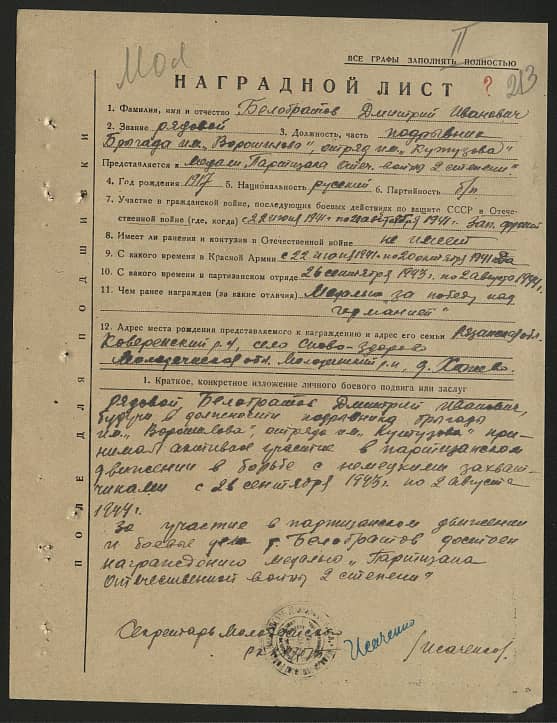 Мол
II
ВСЕ ГРАФЫ ЗАПОЛНЯТЬ ПОЛНОСТЬЮ
НАГРАДНОЙ ЛИСТ ? 213
1. Фамилия, имя и отчество Белобратов Дмитрий Иванович
2. Звание рядовой 3. Должность, часть подрывник
Бригада им. „Ворошилова", отряд им. „Кутузова"
Представляется к медали „Партизана Отеч. войны 2 степени".
4. Год рождения 1917 5. Национальность русский 6. Партийность б/п
7. Участие в гражданской войне, последующих боевых действиях по защите СССР и Отече-
ственной войне (где, когда) с 22 июня 1941 по 1941 г. Зап. фронт
8. Имеет ли ранения и контузии в Отечественной войне не имеет
9. С какого времени в Красной Армии с 22 июня 1941 по 20 октября 1941 года
10. С какого времени в партизанском отряде 26 сентября 1943 г. по 2 августа 1944 г.
11. Чем ранее награжден (за какие отличия) Медалью „За победу над
германией"
12. Адрес места рождения представляемого к награждению и адрес его семьи Рязанская обл.
р-н, село
Молодечненская обл. р-н, д.
1. Краткое, конкретное изложение личного боевого подвига или заслуг
рядовой, Белобратов Дмитрий Иванович,
будучи в должности подрывника бригады
им. „Ворошилова", отряда им. „Кутузова" при-
нимал активное участие в партизанском
движении в борьбе с немецкими захват-
чиками с 26 сентября 1943 г. по 2 августа
1944 г.
За участие в партизанском движении
и боевые дела т. Белобратов достоен
награждению медалью „Партизана
Отечественной войны 2 степени"
Секретарь
РК
Исаченко
/Исаченко/
ПОЛЕ ДЛЯ ПОДШИВКИ